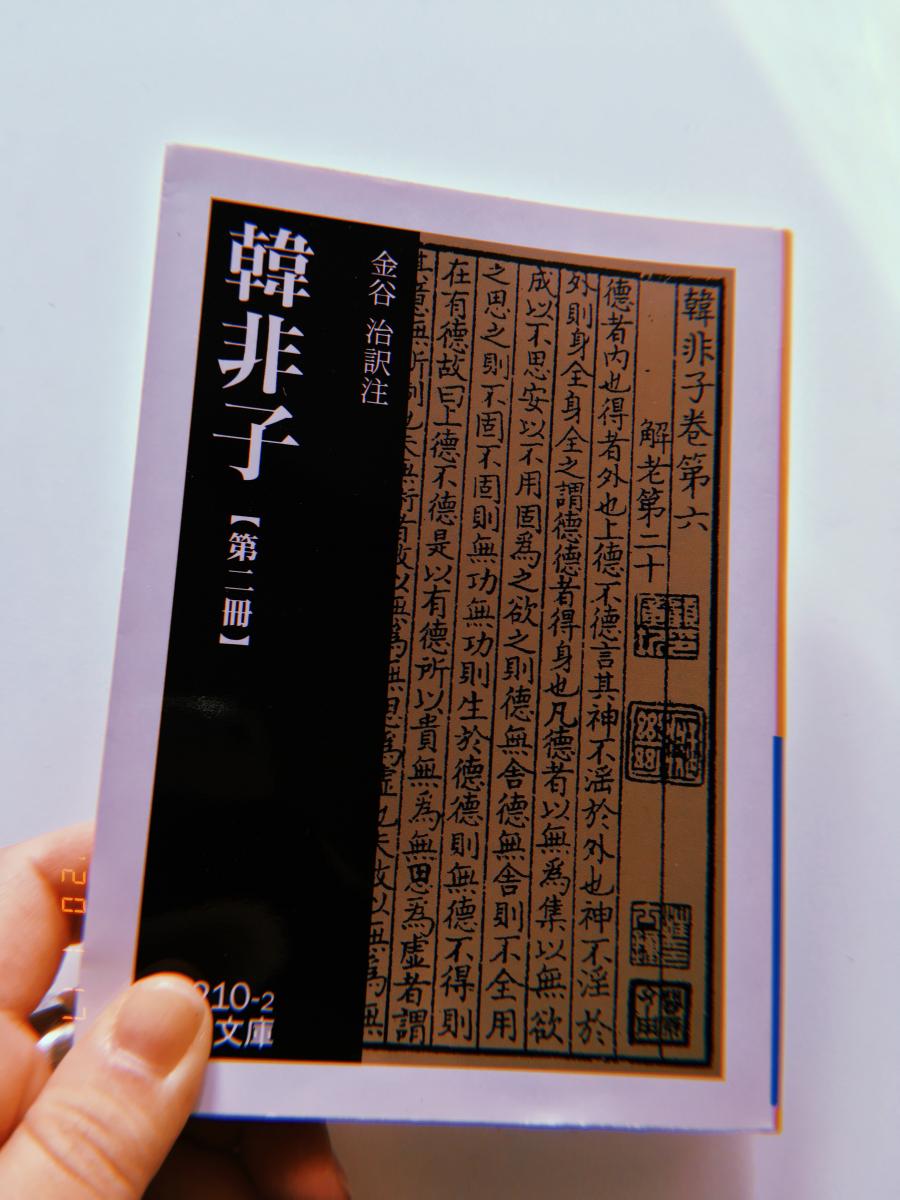 韓非子
【第二冊】
金谷 治訳注
韓非子卷第六
解老第二十
德者内也得者外也上德不德言其神不淫於外也神不淫於
外則身全身全之謂德德者得身也凡德者以無爲集以無欲
成以不思安以不用固爲之欲之則德無舍德無舍則不全用
之思之則不固不固則無功無功則生於德德則無德不得則
在有德故曰上德不德是以有德所以貴無爲無思爲虛者謂
其意無所制也夫無術者故以無爲無思爲虛也夫故以無爲無
210-2
文庫